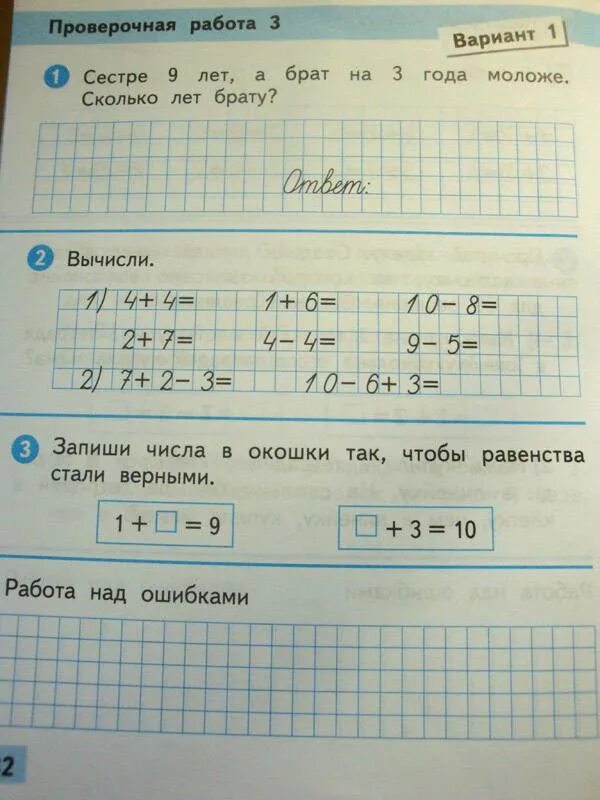 Проверочная работа 3
Вариант 1
1 Сестре 9 лет, а брат на 3 года моложе.
Сколько лет брату?
Ответ:
2 Вычисли.
1) 4+4= 1+6= 10-8=
2+7= 4-4= 9-5=
2) 7+2-3= 10-6+3=
3 Запиши числа в окошки так, чтобы равенства
стали верными.
1 + □ = 9 □ + 3 = 10
Работа над ошибками
2